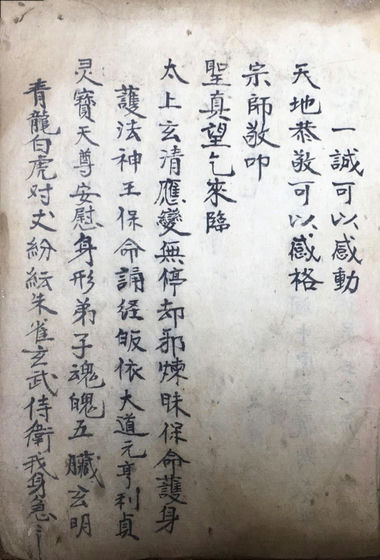 一誠可以感動
天地恭敬可以感格
宗師敬叩
聖真望乞來臨
太上玄清應變無停却邪煉昧保命護身
護法神王保命誦経皈依大道元亨利貞
灵寳天尊安慰身形弟子魂魄五臟玄明
青龍白虎对丈紛紜朱雀玄武侍衛我身急〻